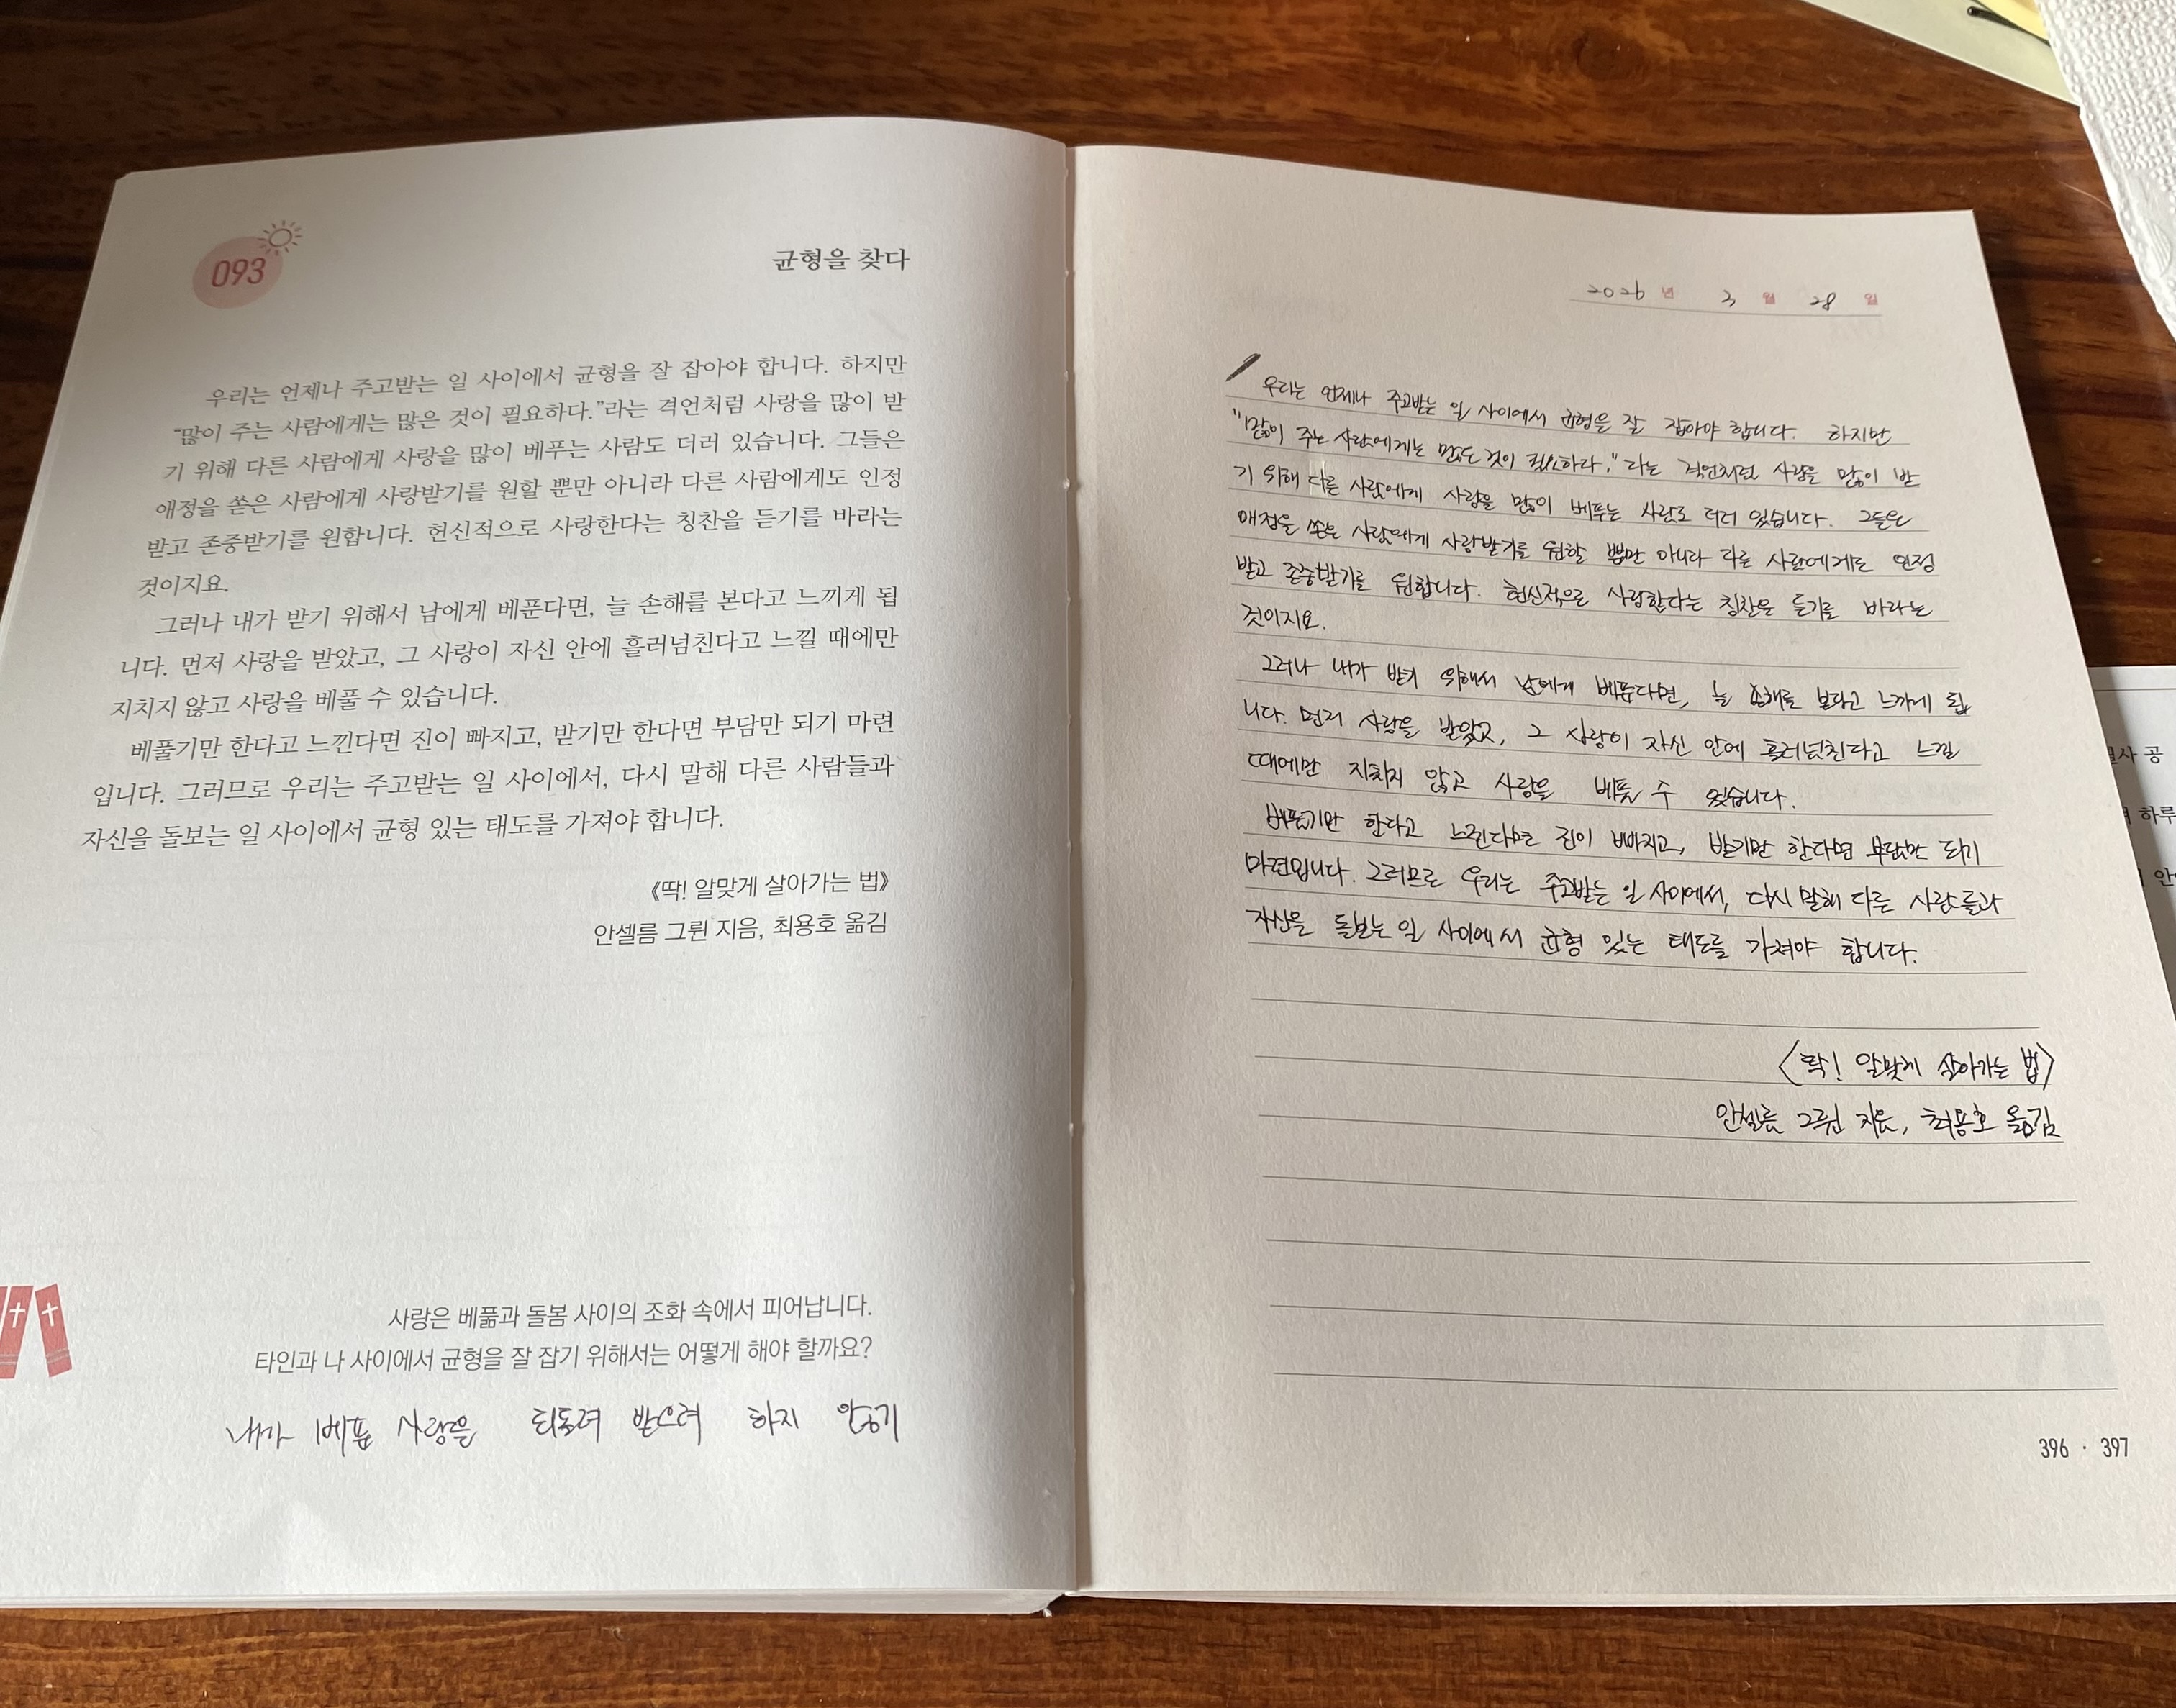 093
균형을 찾다
우리는 언제나 주고받는 일 사이에서 균형을 잘 잡아야 합니다. 하지만
“많이 주는 사람에게는 많은 것이 필요하다.”라는 격언처럼 사랑을 많이 받
기 위해 다른 사람에게 사랑을 많이 베푸는 사람도 더러 있습니다. 그들은
애정을 쏟은 사람에게 사랑받기를 원할 뿐만 아니라 다른 사람에게도 인정
받고 존중받기를 원합니다. 헌신적으로 사랑한다는 칭찬을 듣기를 바라는
것이지요.
그러나 내가 받기 위해서 남에게 베푼다면, 늘 손해를 본다고 느끼게 됩
니다. 먼저 사랑을 받았고, 그 사랑이 자신 안에 흘러넘친다고 느낄 때에만
지치지 않고 사랑을 베풀 수 있습니다.
베풀기만 한다고 느낀다면 진이 빠지고, 받기만 한다면 부담만 되기 마련
입니다. 그러므로 우리는 주고받는 일 사이에서, 다시 말해 다른 사람들과
자신을 돌보는 일 사이에서 균형 있는 태도를 가져야 합니다.
《딱! 알맞게 살아가는 법》
안셀름 그륀 지음, 최용호 옮김
사랑은 베풂과 돌봄 사이의 조화 속에서 피어납니다.
타인과 나 사이에서 균형을 잘 잡기 위해서는 어떻게 해야 할까요?
내가 베푼 사랑을 되돌려 받으려 하지 않기
2026 년 3 월 28 일
우리는 언제나 주고받는 일 사이에서 균형을 잘 잡아야 합니다. 하지만
"많이 주는 사람에게는 많은 것이 필요하다."라는 격언처럼 사랑을 많이 받
기 위해 다른 사람에게 사랑을 많이 베푸는 사람도 더러 있습니다. 그들은
애정을 쏟은 사람에게 사랑받기를 원할 뿐만 아니라 다른 사람에게도 인정
받고 존중받기를 원합니다. 헌신적으로 사랑한다는 칭찬을 듣기를 바라는
것이지요.
그러나 내가 받기 위해서 남에게 베푼다면, 늘 손해를 본다고 느끼게 됩
니다. 먼저 사랑을 받았고, 그 사랑이 자신 안에 흘러넘친다고 느낄
때에만 지치지 않고 사랑을 베풀 수 있습니다.
베풀기만 한다고 느낀다면 진이 빠지고, 받기만 한다면 부담만 되기
마련입니다. 그러므로 우리는 주고받는 일 사이에서, 다시 말해 다른 사람들과
자신을 돌보는 일 사이에서 균형 있는 태도를 가져야 합니다.
〈딱! 알맞게 살아가는 법〉
안셀름 그륀 지음, 최용호 옮김
396 · 397
사 공
하루